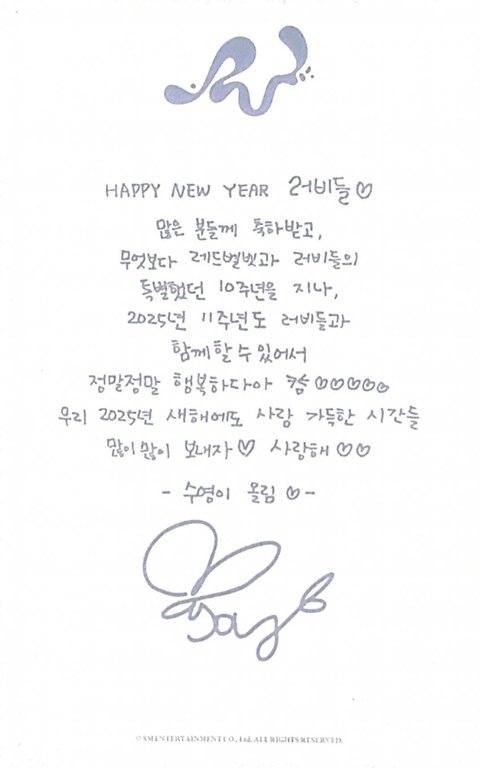 HAPPY NEW YEAR 러비들♡
많은 분들께 축하받고,
무엇보다 레드벨벳과 러비들의
특별했던 10주년을 지나,
2025년 11주년도 러비들과
함께할 수 있어서
정말정말 행복하다아 캬솜♡♡♡♡♡
우리 2025년 새해에도 사랑 가득한 시간들
많이많이 보내자♡ 사랑해♡♡
- 수영이 올림♡-
Joy
© SM ENTERTAINMENT CO., Ltd. ALL RIGHTS RESERVED.